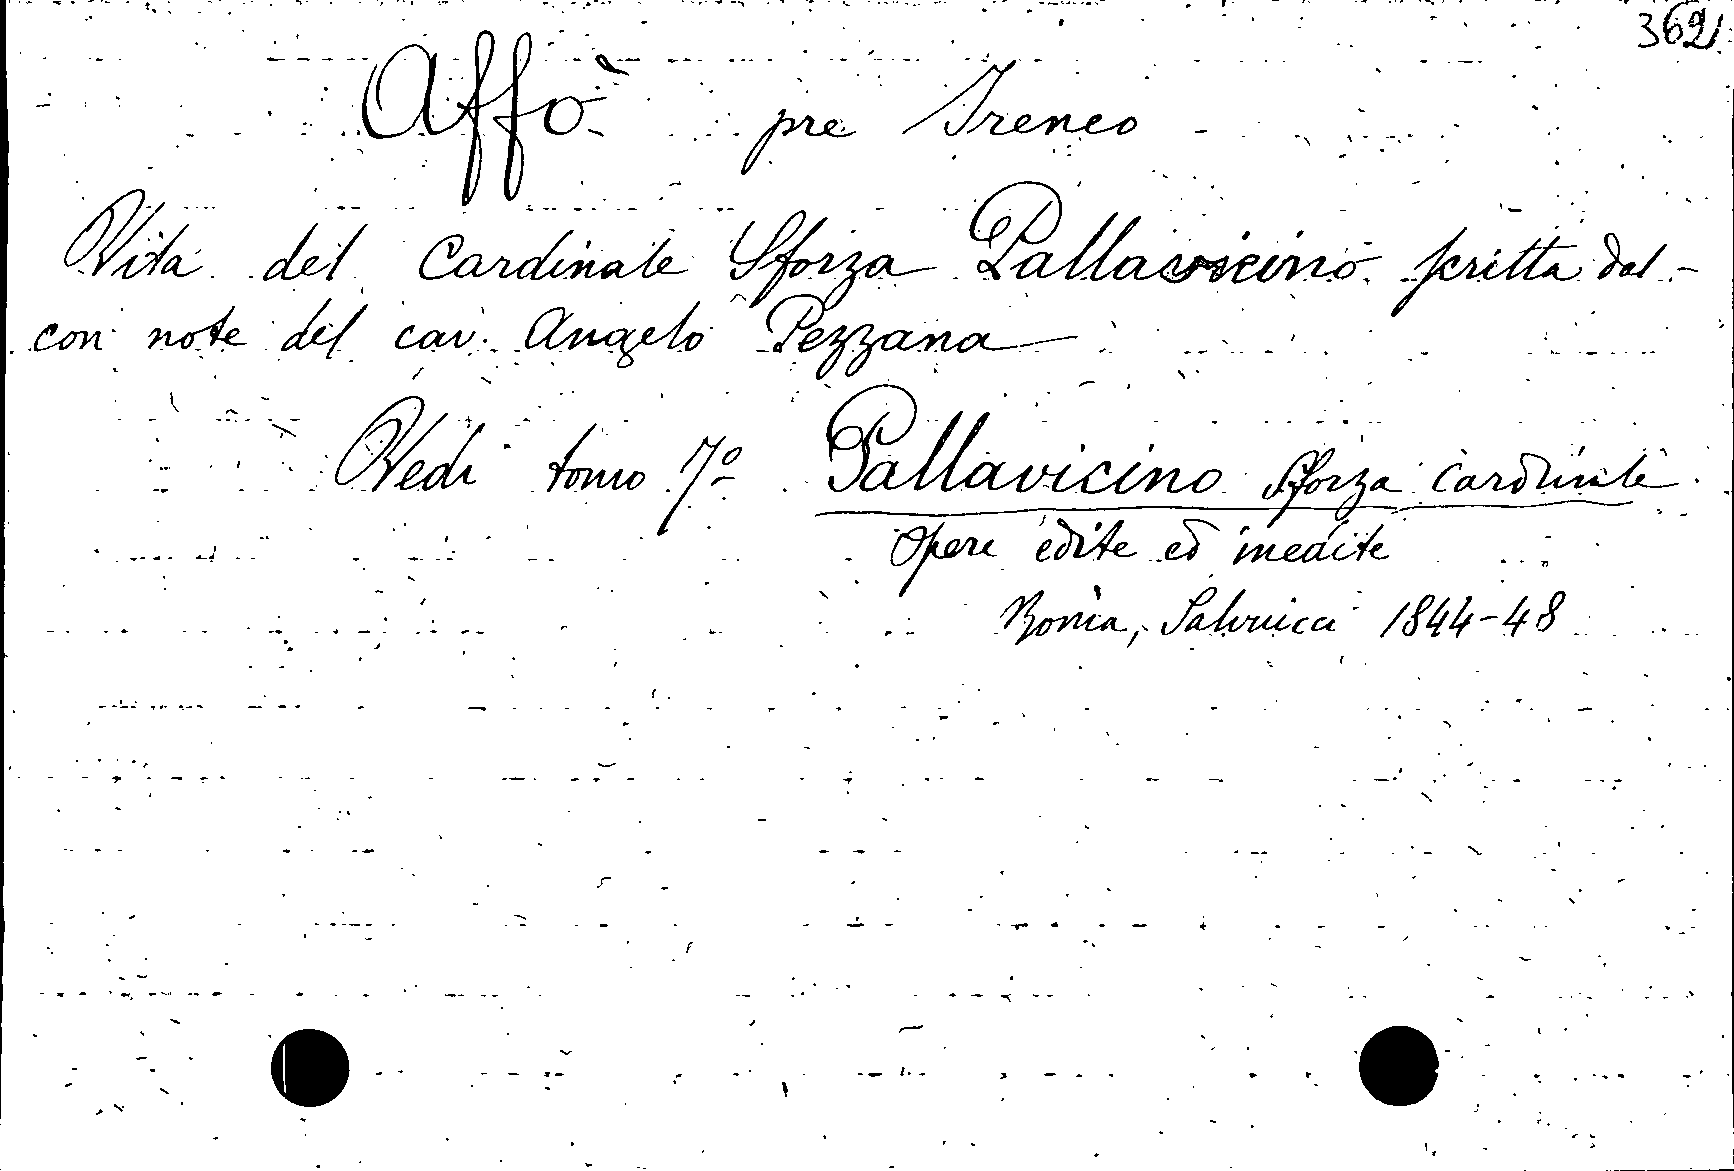 362
Affò pre Ireneo
Vita del Cardinale Sforza Pallavicino scritta dal -
con note del cav. Angelo Pezzana
Vedi tomo 7º Pallavicino Sforza Cardinale
Opere edite ed inedite
Roma, Salviucci 1844-48